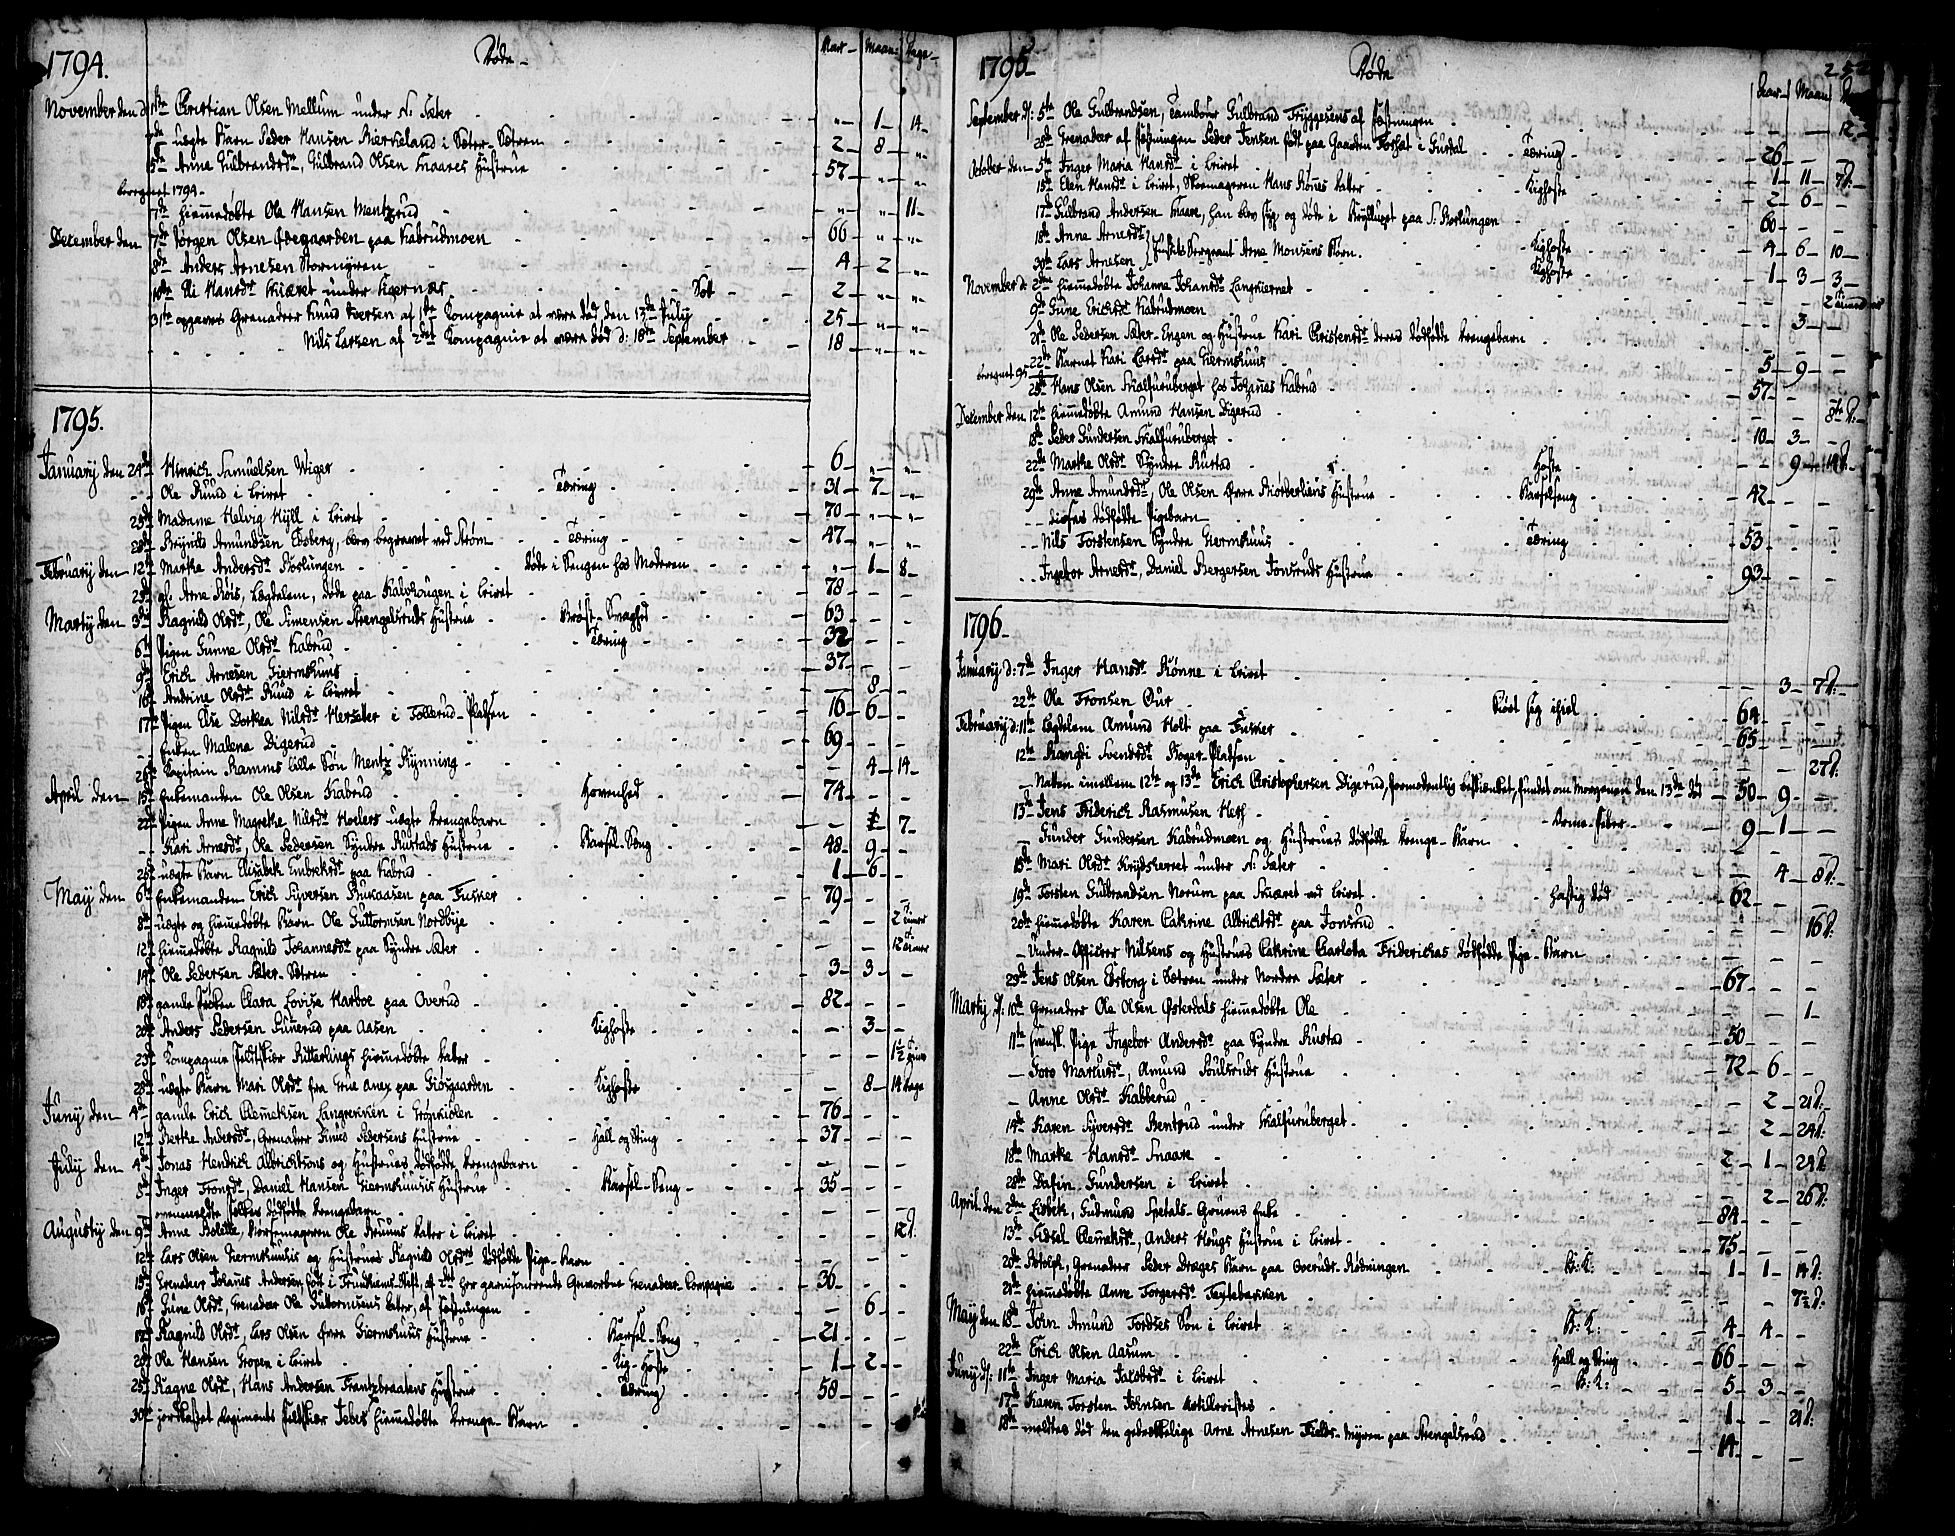 1794. Døde - Aar - Maan: Dage -
November den 1ste Christian Olsen Mellum under N: Sæter - 1 - 14 -
uægte Barn Peder Hansen Bierkeland i Sæter-Sætren 2 - 8 -
5te Anne Gulbrandsdr, Gulbrand Olsen Snaares Hustrue 57 -
beregnet 1794 -
7de hiemmedøbte Ole Hansen Mentzrud 11 -
December den 7de Jørgen Olsen Ødegaarden paa Kabrudmoen 66
8de Anders Arnesen Stormyren 4 - 2
10de Eli Hansdr Kiæret under Tigernæs Sot 2
31te opgaves Grenadeer Knud Iversen af 1ste Compagnie at være død den 13de July 25
Nils Larsen af 2det Compagnie at være død d: 18de September 18
1795.
January den 24de Hinrich Samuelsen Wiger 6
Ole Ruud i Leiret Tæring 31 - 7
25de Madame Helvig Hyll i Leiret 70
28de Brynild Amundsen Esberg, blev begravet ved Strøm Tæring 47
February den 12te Marthe Andersdr Roslungen Døde i Sengen hos Moderen 1 - 8
23de gl. Arne Røis, Lægdslem, døde paa Kalvhougen i Leiret 78
Martij den 3de Ragnild Olsdr, Ole Simensen Strengelsruds Hustrue Bryst-Svaghed 63
6te Pigen Gunne Olsdr Kabrud Tæring 32
9de Erich Arnesen Giermshuus 37
16de Andrine Olsdr Ruud i Leiret 8
17de Pigen Else Dorthea Nilsdr Hersetter i Tollerud-Pladsen 16 - 6
Enken Malene Digerud 69
26de Capitain Ramms lille Søn Mentz Rynning 4 - 14
April den 15de Enkemanden Ole Olsen Kabrud Hovenhed 74
22de Pigen Anne Magrethe Nilsdr Hoelers uægte Drengebarn 7
Kari Arnesdr, Ole Pedersen Søndre Rustads Hustrue Barsel-Seng 48 - 9
25de uægte Barn Elisabeth Embrethsdr paa Kabrud 1 - 6
May den 6te Enkemanden Erich Syversen Bukaasen paa Fusker 79
8de uægte og hiemmedøbte Barn Ole Guttormsen Nordbye 2 Timer
12te hiemmedøbte Ragnild Johannesdr paa Søndre Sæter 12 Timer
14de Ole Pedersen Sæter-Sætren 3 - 3
18de gamle Frøken Clara Lovise Harboe paa Overud 82
20de Anders Pedersen Gunerud paa Aasen Kighoste 3
23de Compagnie Feldtskiær Ritterlings hiemmedøbte Datter 1½ Time
28de uægte Barn Mari Olsdr fra Grue Anex paa Giørgaarden Kighoste 8 - 14 Dage
Juny den 4de gamle Erich Clemetsen Langrekken i Grønkiølen 76
12te Berthe Andersdr, Grenadeer Knud Pedersens Hustrue Hall og Sting 37
July den 4de Jonas Hendrich Albrichtsons og Hustrues dødfødte Drengebarn
5te Inger Trondsdr, Daniel Hansen Giermshuus's Hustrue Barsel-Seng 35
ovenmeldte Folkes dødfødte Drengebarn
Augusty den 9de Anne Bolette, Kiørsemageren Ole Bruuns Datter i Leiret 12 d.
12te Lars Olsen Giermshuus's og Hustrues Ragnild Olsdrs dødfødte Pige-Barn
15de Grenadeer Johannes Andersen, født i Trundhiems Stift, af det her garnisonerende Gevorbne Grenadeer-Compagnie 36
16de Gune Olsdr, Grenadeer Ole Guttormsens Datter, af Fæstningen 6
17de Ragnild Olsdr, Lars Olsen Øvre Giermshuus's Hustrue Barsel-Seng 21
20de Ole Hansen Gropen i Leiret Kig-Hoste 1 - 2
25de Ragne Olsdr, Hans Andersen Frantzbraatens Hustrue Tæring 58
30te jordfæstet Regiments Feldtskiær hiemmedøbte Drenge-Barn
1795 - Døde 252
Aar - Maan
September d: 5te Ole Gulbrandsen, Tambour Gulbrand Tryggesens af Fæstningen 12
28de Grenadeer af Fæstningen Peder Jensen født paa Gaarden Forset i Gusdal Tæring 26
October den 5te Inger Maria Hansdr i Leiret 1 - 11 - 7 d.
15de Elen Hansdr i Leiret, Skomageren Hans Rønes Datter Kighoste 2 - 6
17de Gulbrand Andersen Snaare, han blev syg og døde i Brylluppet paa N. Roslungen 60
18de Anne Arnesdr Kighoste 4 - 6 - 10
30te Lars Arnesen } Fuseler Sergeant Arne Monsens Børn. Kighoste 1 - 3 - 3
November d: 2den hiemmedøbte Johanne Johansdr Langkiernet 2 Timer
9de Gune Erichsdr Kabrudmoen 3
21de Ole Pedersen Sæter-Engen og Hustrue Kari Christensdr deres dødfødte Drengebarn
22de Barnet Kari Larsdr paa Giermshuus 5 - 9
beregnet 95
25de Hans Olsen Skalfuruberget hos Johannes Kabrud 57
December den 12te hiemmedøbte Amund Hansen Digerud 8te d.
18de Peder Gundersen Skalfuruberget 10 - 3
22de Marthe Olsdr Søndre Rustad Hoste 9 - 14 d.
29de Anne Amundsdr, Ole Olsen Øvre Hustrue Barselseng 42
disses dødfødte Pigebarn
Nils Torstensen Søndre Giermshuus Tæring 53
Ingebor Arnesdr, Daniel Bergersen Jonsruds Hustrue 93
1796 -
January d: 7de Inger Hansdr Rønne i Leiret 3 - 7 d.
22de Ole Tronsen Øur 64
February d: 11te Lægdslem Amund Holt paa Fusker 65
12te Rangdi Svendsdr Roger-Pladsen 27 d.
Natten imellem 12te og 13de Erich Christophersen Digerud, formodentlig beskiænket, fundet om Morgenen den 13de død 50 - 9
13de Jens Friderich Rasmusen Hess Orme-Feber 9 - 1
Gunder Gundersen Kabrudmoen og Hustrues dødfødte Drenge-Barn
15de Mari Olsdr Krydsherret under N: Sæter 4 - 8 d.
19de Torsten Gulbrandsen Norum paa Kiæret ved Leiret hastig Død 62
20de hiemmedøbte Karen Cathrine Albrichtsdr paa Jonsrud 16 d.
Under-Officeer Nilsens og Hustrues Cathrine Charlotta Friderichas dødfødte Pige-Barn
29de Jens Olsen Esberg i Sætren under Nordre Sæter 67
Martij d: 10de Grenadeer Ole Olsen Østerdals hiemmedøbte Ole 1
11te svensk Pige Ingebor Andersdr paa Søndre Rustad 50
Toro Martusdr, Amund Poulsruds Hustrue 72 - 6
Anne Olsdr Kabberud 2 - 21 d.
14de Karen Syversdr Bentsrud under Skalfuruberget 2 - 24 d.
18de Marthe Hansdr Snaare 2 - 1 - 24 d.
28de Dafin Gundersen i Leiret 2 - 26 d.
April den 2den Lisbeth, Gudmund Spetals-Gruens Enke 84
13de Sidsel Clemetsdr, Anders Hougs Hustrue i Leiret 75
20de Adolph, Grenadeer Peder Drages Barn paa Overuds-Rødningen B: K: 1 - 1 - 14 d.
21de hiemmedøbte Anne Torgersdr Teptebakken 7½ d.
May den 18de John Amund Tordses Søn i Leiret B: K: 4 - 4
22de Erich Olsen Aasum Hall og Sting 66
Juny d: 11te Inger Maria Jacobsdr i Leiret B: K: 5 - 3
17de Karen Torsten Johnsen Artilleristes 1 - 21 d.
18de meldtes død den gebrekkelige Arne Arnesen Fields-Myren paa Strengelsrud 14